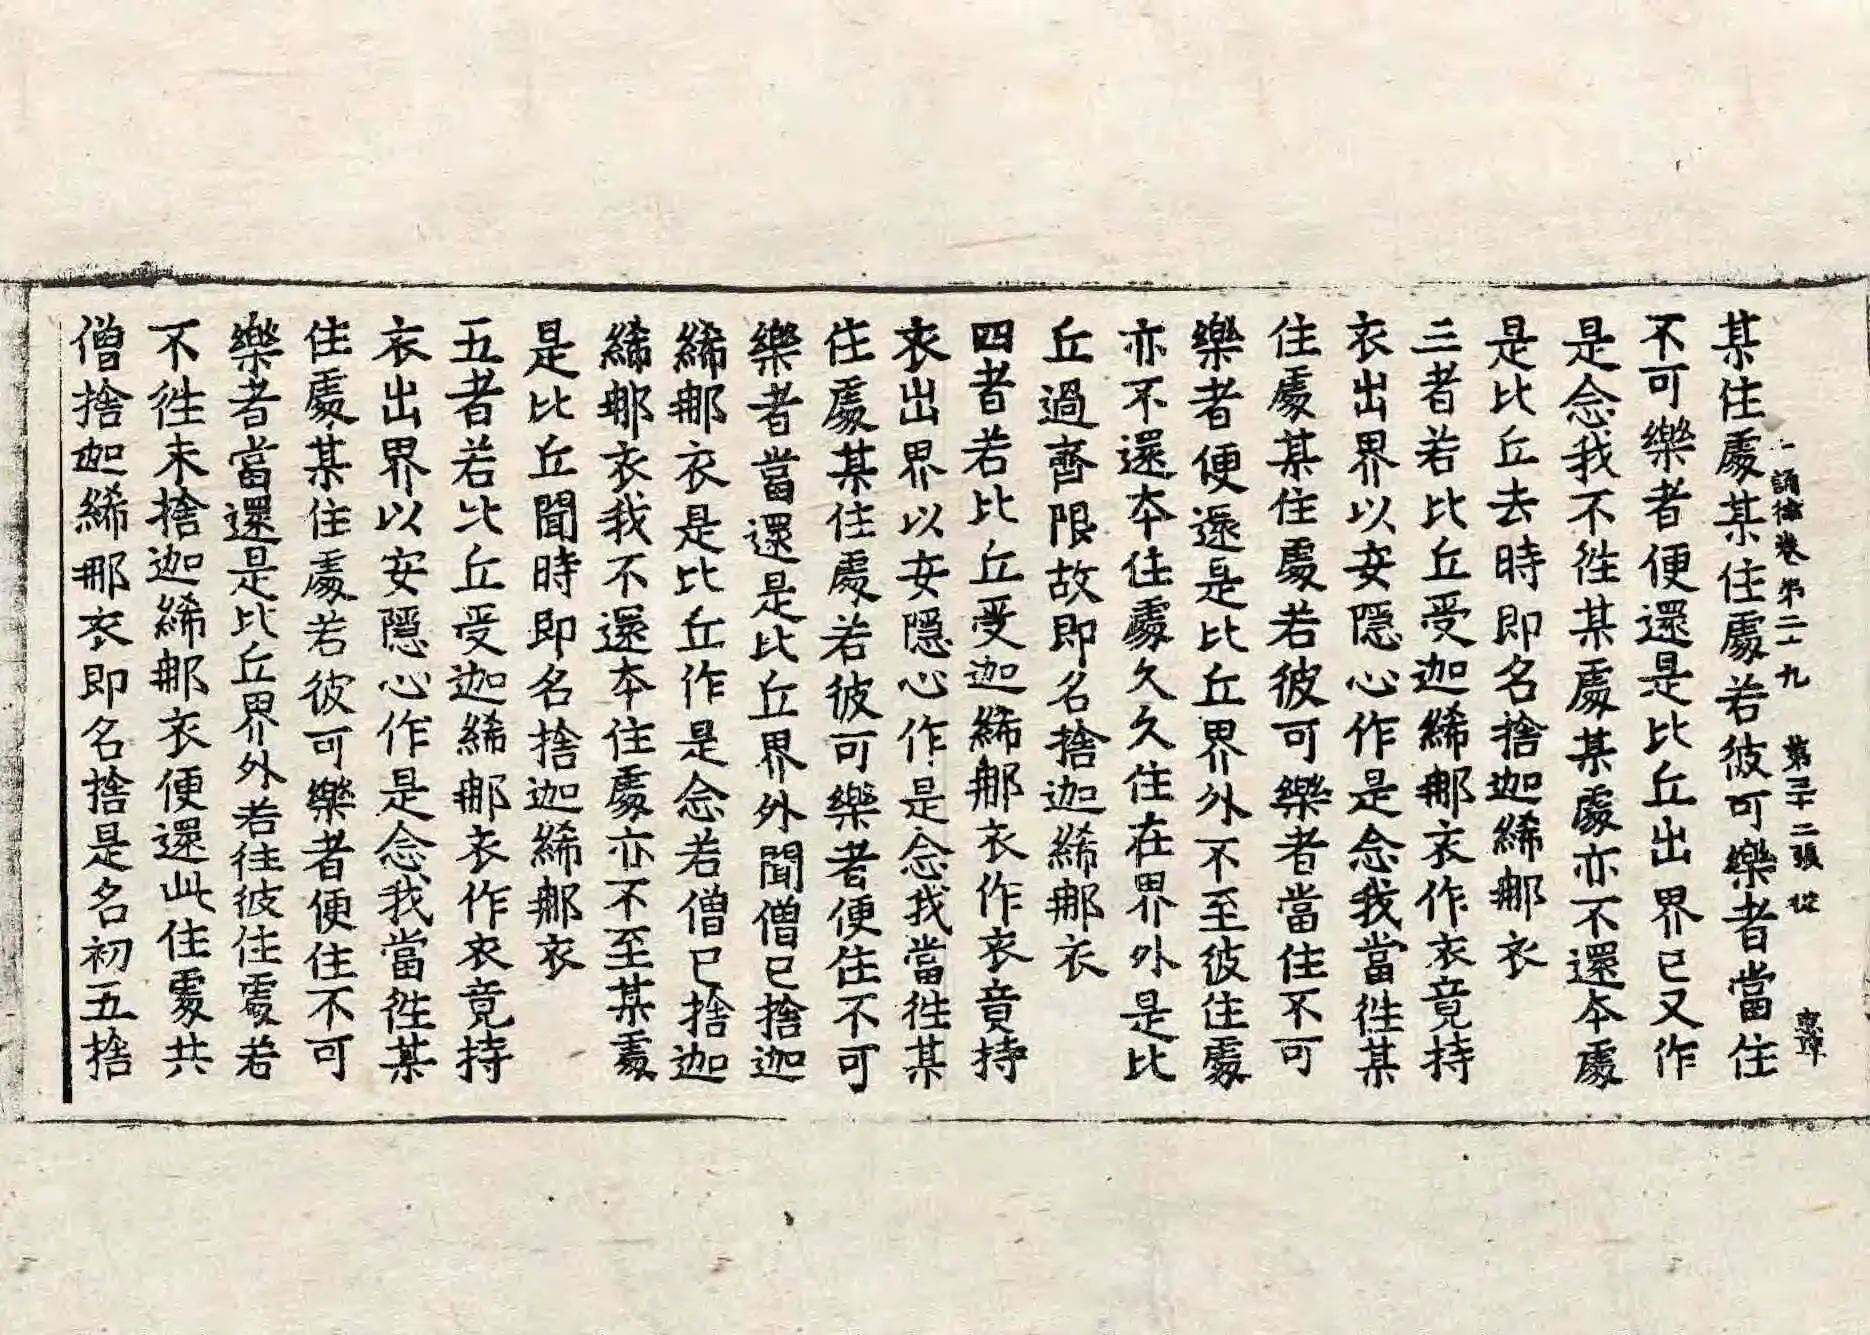 十誦律卷第二十九 第三十二張 從
某住處某住處若彼可樂者當住
不可樂者便還是比丘出界已又作
是念我不徃某處某處亦不還本處
是比丘去時即名捨迦絺那衣
三者若比丘受迦絺那衣作衣竟持
衣出界以安隱心作是念我當徃某
住處某住處若彼可樂者當住不可
樂者便還是比丘界外不至彼住處
亦不還本住處久久住在界外是比
丘過齊限故即名捨迦絺那衣
四者若比丘受迦絺那衣作衣竟持
衣出界以安隱心作是念我當徃某
住處某住處若彼可樂者便住不可
樂者當還是比丘界外聞僧已捨迦
絺那衣是比丘作是念若僧已捨迦
絺那衣我不還本住處亦不至某處
是比丘聞時即名捨迦絺那衣
五者若比丘受迦絺那衣作衣竟持
衣出界以安隱心作是念我當徃某
住處某住處若彼可樂者便住不可
樂者當還是比丘界外若往彼住處若
不徃未捨迦絺那衣便還此住處共
僧捨迦絺那衣即名捨是名初五捨